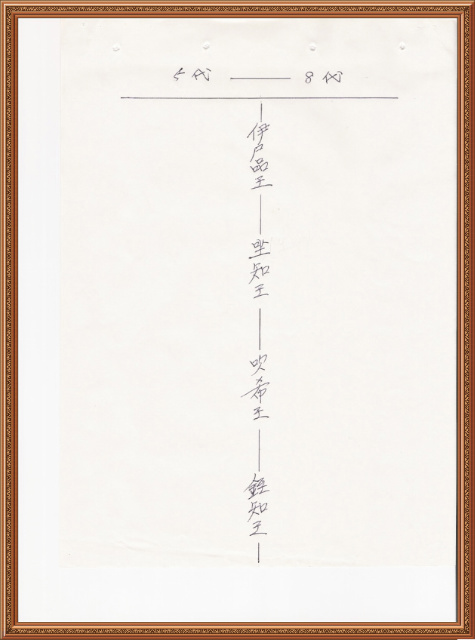 5代 —— 8代
伊尸品王
坐知王
吹希王
銍知王